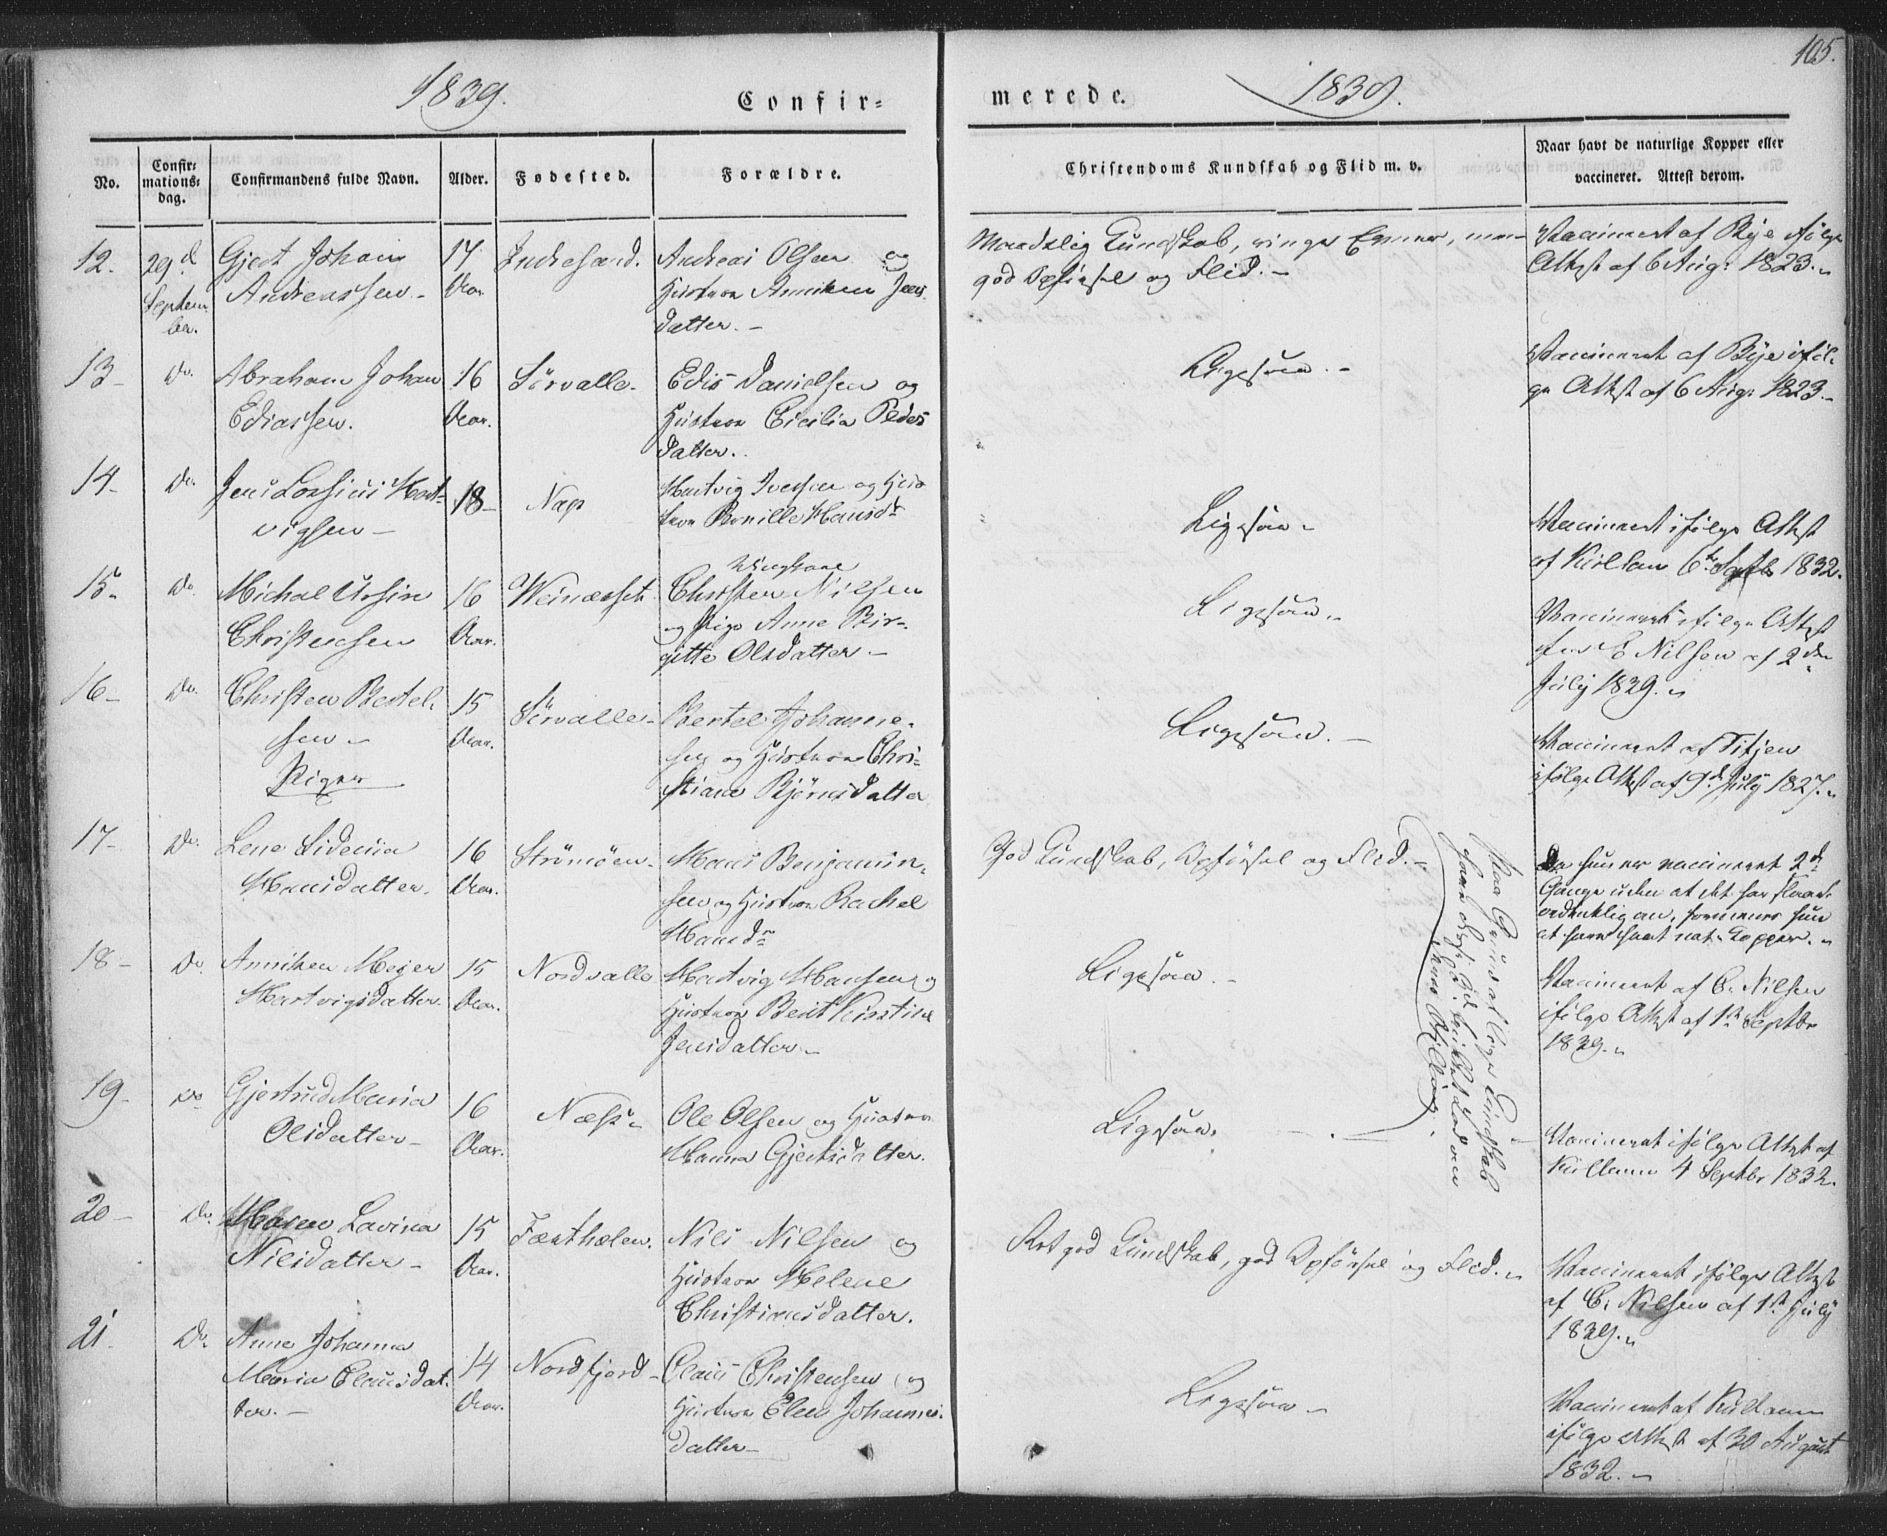 105.
1839.
1839.
Confir=
merede.
No.
Confir=
mations=
dag.
Confirmandens fulde Navn.
Alder.
Fødested.
Forældre.
Christendoms Kundskab og Flid m. v.
Naar havt de naturlige Kopper eller
vaccineret. Attest derom.
12.
29d
Septem
ber.
Gjert Johan
Andreassen.
17
Aar.
Indresand.
Andreas Olsen og
Hustroe Anniken Jens
datter.
Maadelig Kundskab, ringe Evner, men
god Opførsel og Flid.
Vaccineret af Bye ifølge
Attest af 6 Aug: 1823.
13
Do.
Abraham Johan
Ediassen.
16
Aar.
Sørvalle.
Edis Danielsen og
Hustroe Cicilia Peders
datter.
Ligesaa.
Vaccineret af Bye iføl-
ge Attest af 6 Aug: 1823.
14
Do.
Jens Lossius Hart-
vigsen
18
Nap
Hartvig Iversen og Hus
troe Pernille Hansdr
Ligesaa
Vaccineret ifølge Attest
af Kullam 6te Septb 1832.
15
Do.
Michal Ursin
Christensen
16
Aar.
Weinæsset
Ungkarl
Christen Nilsen
og Pige Anne Bir-
gitte Olsdatter.
Ligesaa
Vaccineret ifølge Attest
fra E Nilsen af 2den
July 1829.
16
Do.
Christen Bertel-
sen
15
Aar.
Sørvalle
Bertel Johanne-
sen og Hustroe Chri-
stiane Bjørnsdatter
Ligesaa.
Vaccineret af Titjen
ifølge Attest af 9d July 1827.
Piger
17
Do.
Lene Sidenia
Hansdatter.
16
Aar.
Strømøen
Hans Benjamin-
sen og Hustroe Rachel
Hansdr
God Kundskab, Opførsel og Flid.
Da hun er vaccineret 2de
Gange uden at det har slaaet
ordentlig an, formenes hun
at have havt nat. Kopper.
18
Do.
Anniken Meyer
Hartvigsdatter
15
Aar.
Nordvalle
Hartvig Hansen og
Hustroe Berit Kirstine
Jensdatter
Ligesaa.
Vaccineret af E. Nilsen
ifølge Attest af 1st Septbr
1829.
19
Do
Gjertrud Maria
Olsdatter
16
Aar.
Næss
Ole Olsen og Hustroe
Hanna Gjertsdatter.
Ligesaa.
Vaccineret ifølge Attest af
Kullam 4 Septbr 1832.
20
Do.
Maren Lavina
Nilsdatter
15
Aar.
Færthælen.
Nils Nilsen og
Hustroe Helene
Christensdatter.
Ret god Kundskab, god Opførsel og Flid.
Vaccineret ifølge Attest
af E. Nilsen af 1st July
1829.
21
Do
Anne Johanna
Maria Clausdat-
ter.
14
Aar.
Nordfjord
Claus Christensen og
Hustroe Elen Johannes-
datter
Ligesaa
Vaccineret af Kullam
ifølge Attest af 30 August
1832.